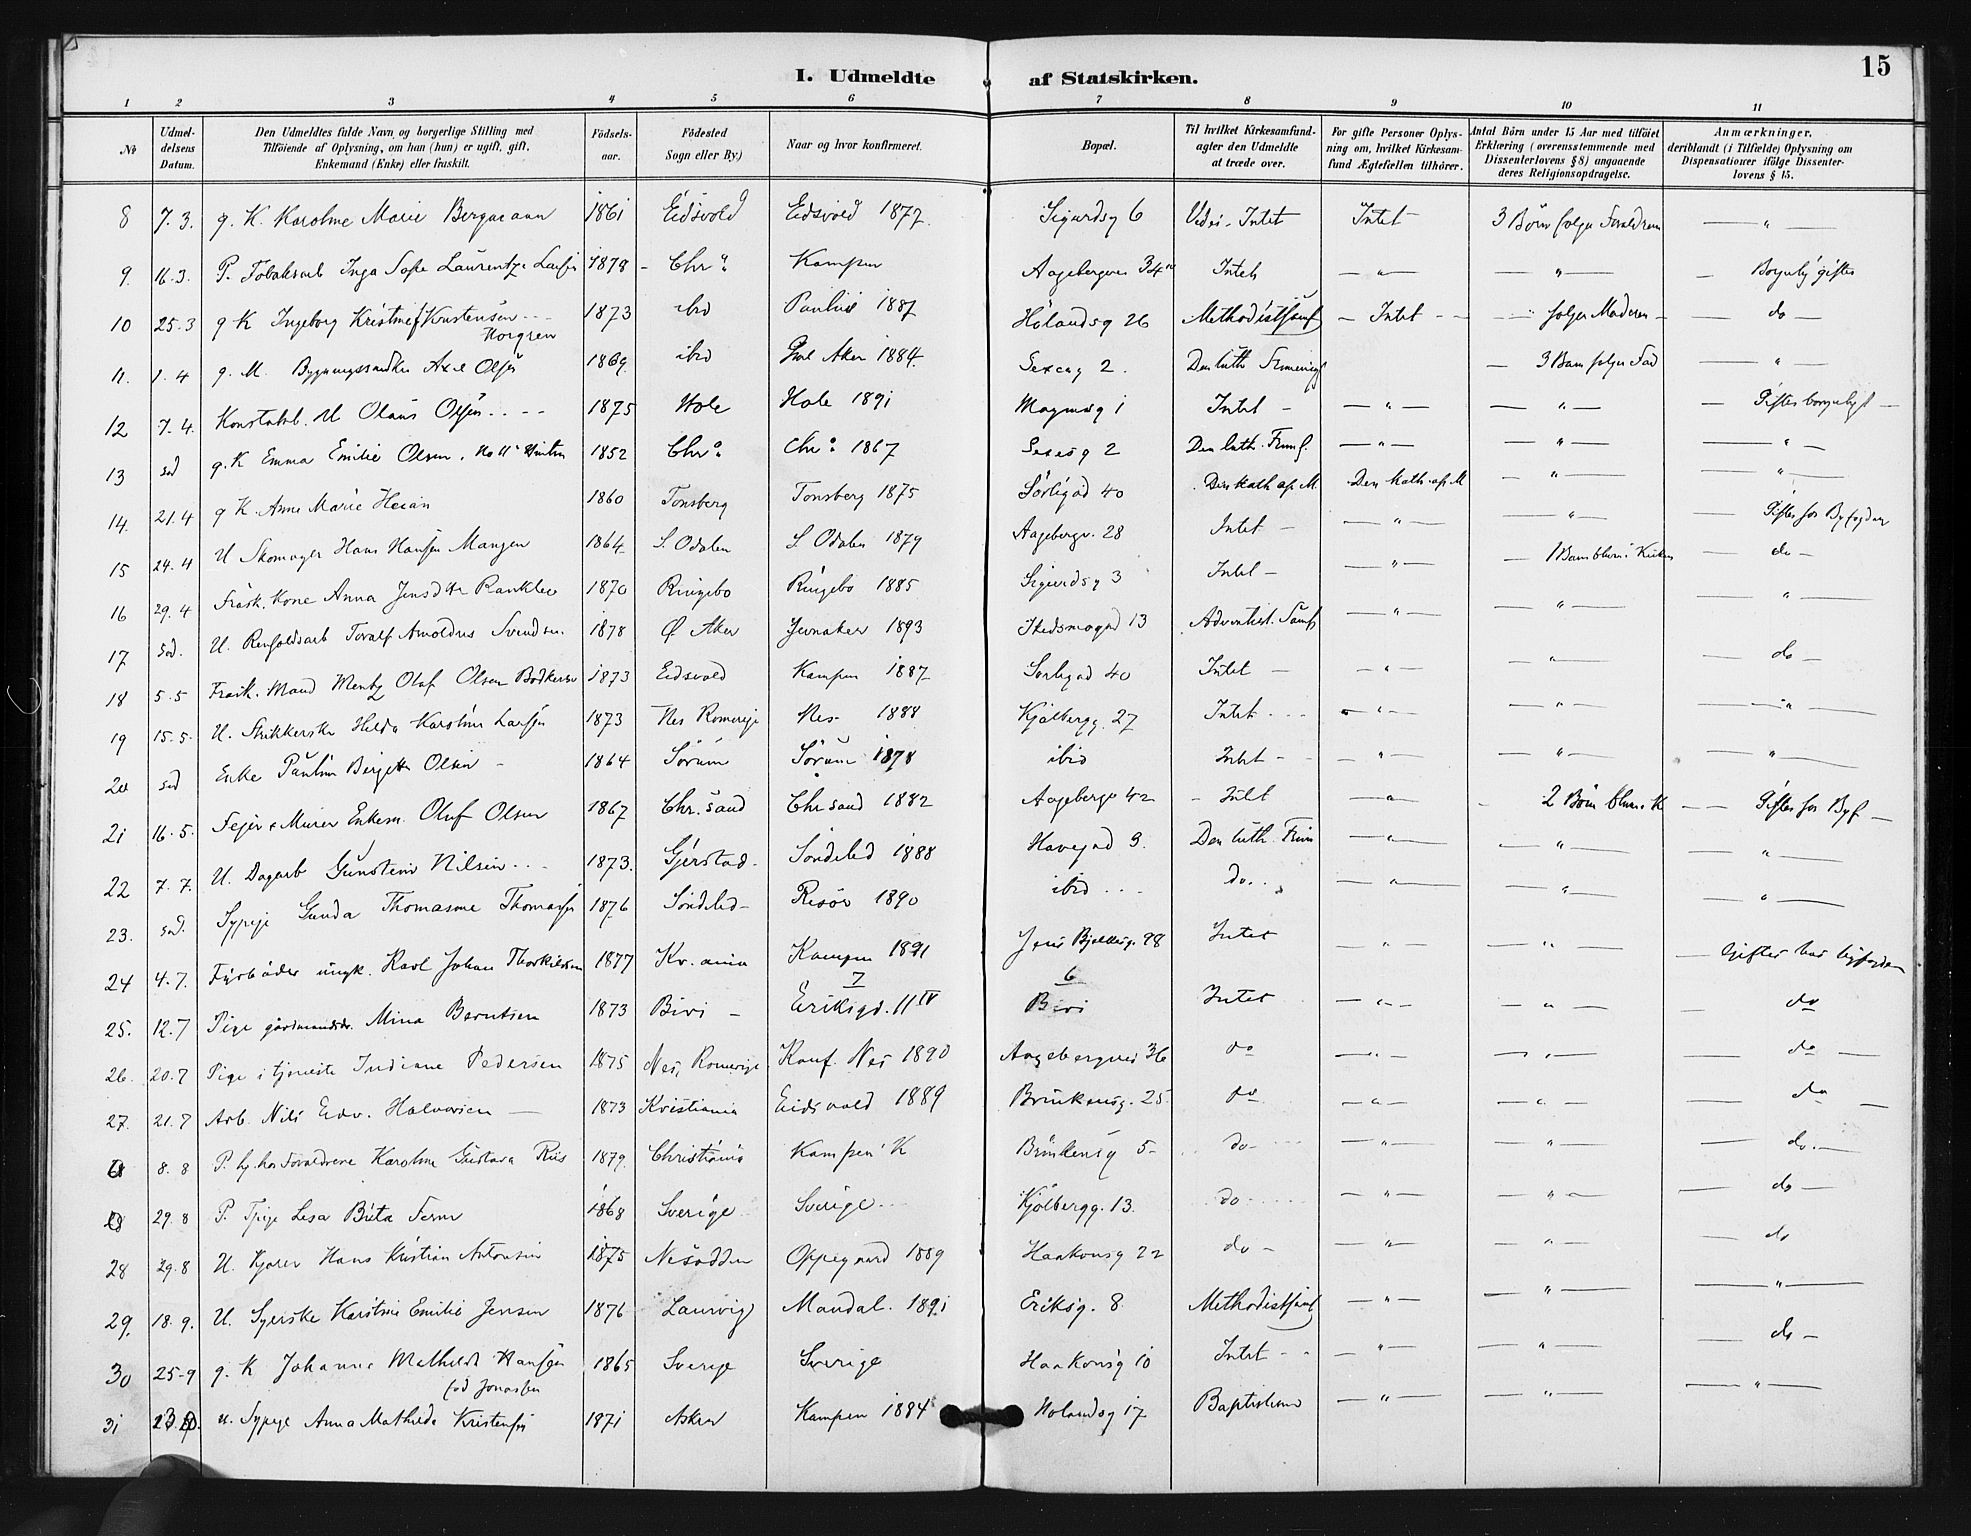 15
I. Udmeldte af Statskirken.
1 2 3 4 5 6 7 8 9 10 11
No
Udmeldelsens Datum.
Den Udmeldtes fulde Navn og borgerlige Stilling med Tilføiende af Oplysning, om han (hun) er ugift, gift, Enkemand (Enke) eller fraskilt.
Födselsaar.
Födested Sogn eller By.)
Naar og hvor konfirmeret.
Bopæl.
Til hvilket Kirkesamfundagter den Udmeldte at træde over.
For gifte Personer Oplysning om, hvilket Kirkesamfund Ægtefællen tilhörer.
Antal Börn under 15 Aar med tilföiet Erklæring (overensstemmende med Dissenterlovens § 8) angaaende deres Religionsopdragelse.
Anmærkninger, deriblandt (i Tilfælde) Oplysning om Dispensationer ifölge Dissenterlovens § 15.
8 7.3. g. K. Karoline Marie Bergmann 1861 Eidsvold Eidsvold 1877 Sigurdsg 6 Intet Intet 3 Börn "
9. 16.3. P. Inga Sofie Laurentze Larsen 1878 - Chr.a Kampen Aagebergvn 34 Intet — " — — " —
10 25.3 g K Ingeborg Kristine Kristensen 1873 ibid Paulus 1887 Hölandsg 26 Methodistsamf — Intet — følger Moderen — do —
Norgren
11. 1.4 g. M. Axel Olsen 1869 ibid Aker 1884 2. Den luth — 3 Barn følger — " —
12 7.4. Konstabel. U Olaus Olsen 1875 Hole Hole 1891 Magnusg 1 Intet — — " — — " — Giftes borgerligt —
13 sd g. K Emma Emilie Olsen. 1852 Chr.a Chr.a 1867 2 Den luth. — " — — " — — " —
14. 21.4 g K. Anne Marie Heian 1860 Tønsberg Tønsberg 1875 Sörligad 40 Den kath. ap. M. Den kath. ap. M — " — — " —
15 24.4 U Skomager Hans Hansen Mangen 1864 S. Odalen S. Odalen 1879 Aagebergv. 28 Intet — — " — — " — Giftes hos Byfogden
16 29.4 Frask. Kone Anna Jensdtr 1870 Ringebo Ringebo 1885 Sigurdsg 3 Intet — — " — — 1 Barn i Kirken — do —
17 sd. U. Renholdsarb Toralf Arnoldus Svendsen. 1878 Ø Aker Jevnaker 1893 Skedsmogad 13 Adventist. Samf — " — — " — — " —
18 5.5 Frask. Mand Mentz Olaf Olsen 1873 Eidsvold Kampen 1887 Sorligad 40 Intet — — " — — " — do —
19 15.5. U. Strikkerske Hilda Karoline Larsen 1873 Nes Romerige Nes 1888 Kjølbergg. 27 Intet — " — — " — — " —
20 sd Enke Pauline Birgitte Olsen — 1864 Sørum Sørum 1878 ibid Intet — — " — — " — — " —
21 16.5. Fejer & Murer Enkem. Oluf Olsen 1867 Chr.sand Chr sand 1882 Aagebergv 42 - Intet — " — 2 Börn — Giftes hos Byf —
22 7.7. U. Dagarb Gunstein Nilsen 1873. Gjerstad Söndeled 1888 Havegad 3. Den luth. — " — — " — — " —
23. sd. Sypige Gunda Thomasine Thomassen 1876 Söndeled — Risör 1890 ibid do. — " — — " — — " —
24 4.7. Fyrböder ungk. Karl Johan Thorkildsen 1877 Kr.ania Kampen 1891 Jens Bjelkesg. 98 Intet — " — — " — — Giftes hos byfogden
7 6
25. 12.7 Pige gårdmandsdr. Mina Berntsen 1873 Biri — Eriksgd. 11 IV Biri Intet — " — — " — do
26. 20.7 Pige i tjeneste Indiane Pedersen 1875 Nes, Romerige Konf. Nes 1890 Aagebergvei 36 do — " — — " — do —
27. 21.7 Arb. Nils Edv. Halvorsen — 1873 Kristiania Eidsvold 1889 Brinkensg. 25 do — " — — " — do —
8.8 P. hj. hos Forældrene Karoline Gustava Riis 1879. Christiania Kampen K Brinkensg 5 — do — — " — — " — do. —
29.8 P. Lisa Brita 1868 Sverige Sverige Kjölbergg. 13. do — " — — " — do —
28 29.8 U. Kjörer Hans Kristian Antonsen 1875 Nesodden Oppegaard 1889 Haakonsg 22 do — — " — — " — do
29. 18.9. U. Syerske Emilie Jensen 1876 Laurvig Mandal. 1891 Eriksg. 8. Methodistsamf — " — — " — — " —
30 25-9 g. K Johanne Mathilde Hansen 1865 Sverige Sverige Haakonsg 10 Intet — " — — " — do —
född Jonassen
31 U. Sypige Anna Mathilde Kristensen 1871 Asker Kampen 1884 Holandsg 17 Baptisterne — " — — " — — " —